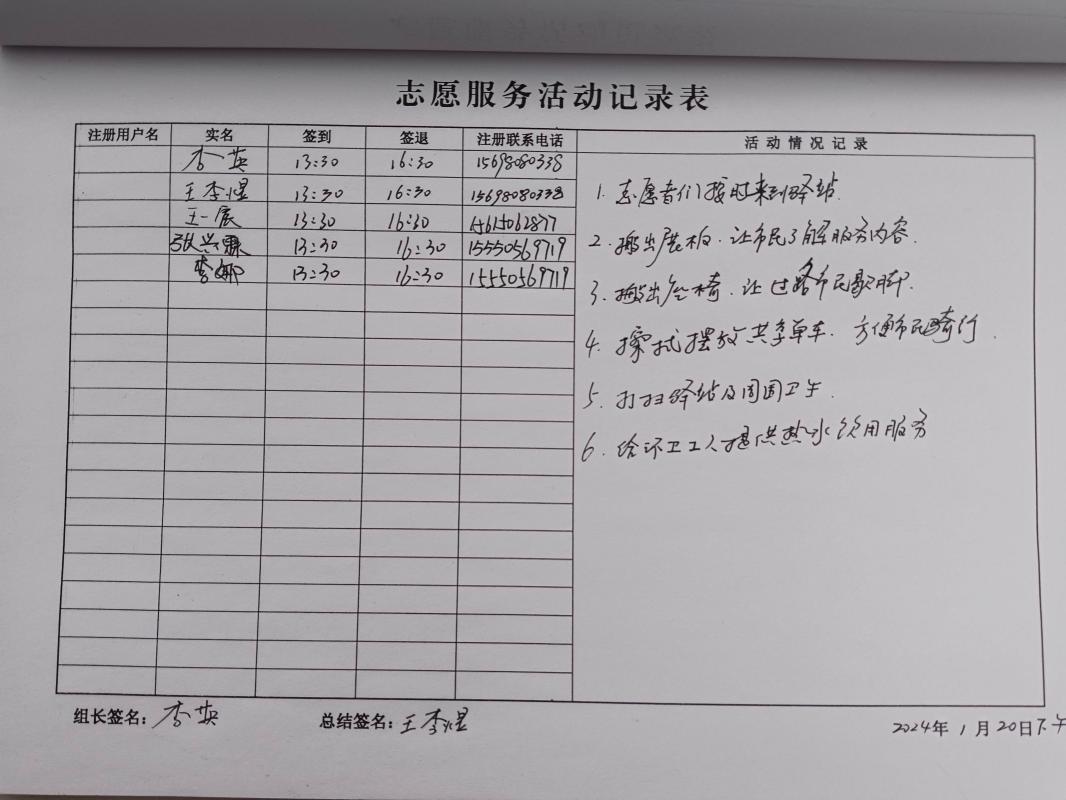 志愿服务活动记录表
注册用户名 实名 签到 签退 注册联系电话 活动情况记录
李英 13:30 16:30 15698080338
王李煜 13:30 16:30 15698080338
王一辰 13:30 16:30
张兴霖 13:30 16:30 15550569719
李娜 13:30 16:30 15550569719
1. 志愿者们按时来到驿站.
2. 搬出展柏. 让市民了解服务内容.
3. 搬出座椅. 让过路市民歇脚.
4. 擦拭摆放共享单车. 方便市民骑行.
5. 打扫驿站及周围卫生.
6. 给环卫工人提供热水饮用服务
组长签名: 李英 总结签名: 王李煜 2024年1月20日下午